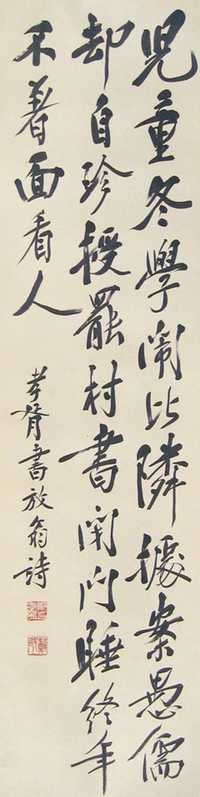 兒童冬學鬧比隣據案愚儒
却自珍授罷村書閉門睡終年
不着面看人
孝胥書放翁詩